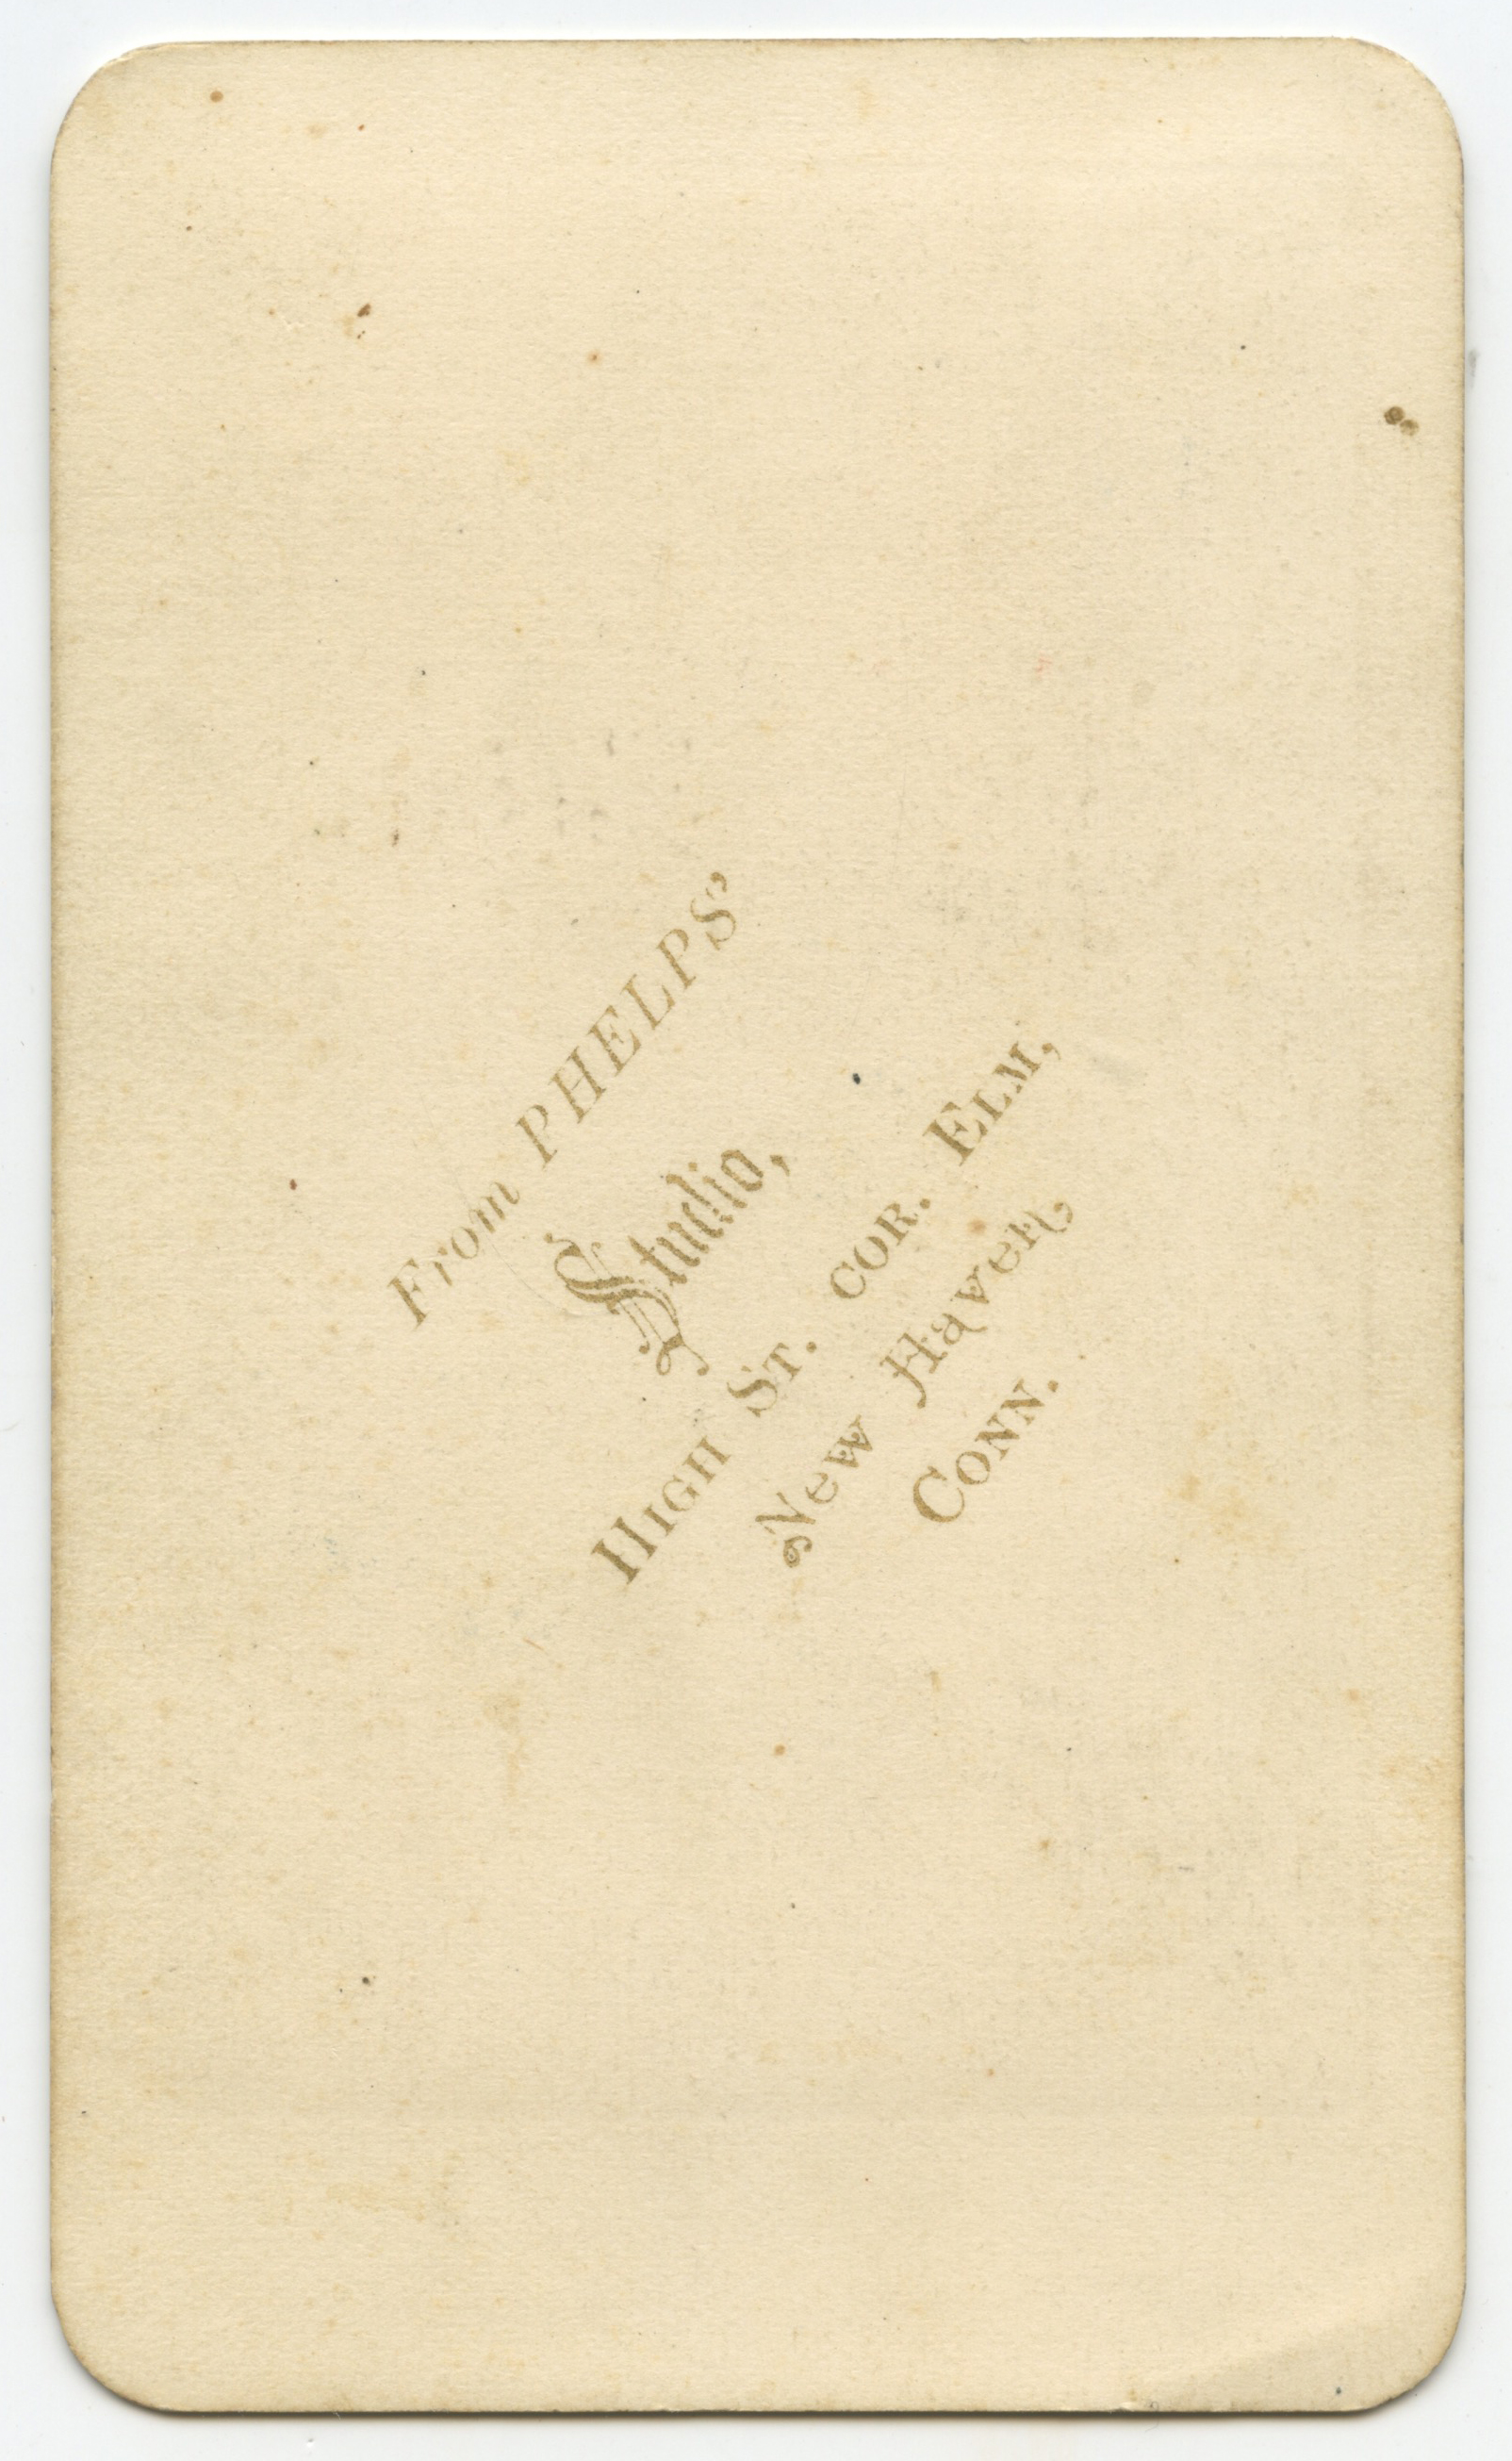 From PHELPS'
Studio,
HIGH ST. COR. ELM,
New Haven,
CONN.